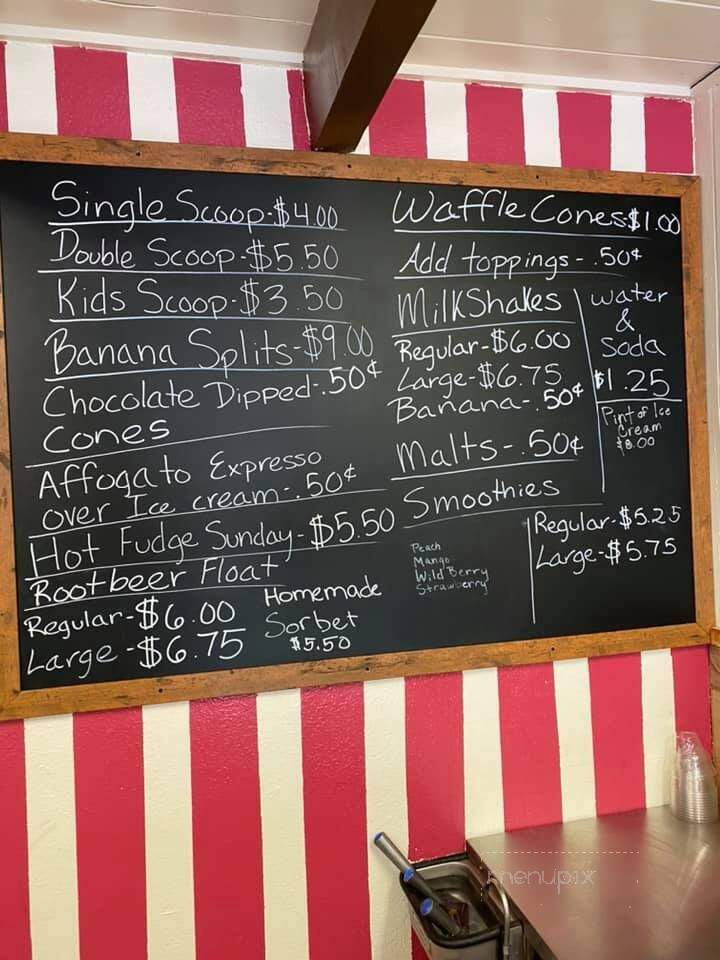 Single Scoop-$4.00
Double Scoop-$5.50
Kids Scoop-$3.50
Banana Splits-$9.00
Chocolate Dipped-.50¢
Cones
Affogato Expresso
over Ice cream-.50¢
Hot Fudge Sunday-$5.50
Rootbeer Float
Regular-$6.00
Large-$6.75
Homemade
Sorbet
$5.50
Waffle Cones-$1.00
Add toppings-.50¢
MilkShakes
Regular-$6.00
Large-$6.75
Banana-.50¢
Malts-.50¢
water
&
Soda
$1.25
Pint of Ice
Cream
$8.00
Smoothies
Peach
Mango
Wild Berry
Strawberry
Regular-$5.25
Large-$5.75
menupix